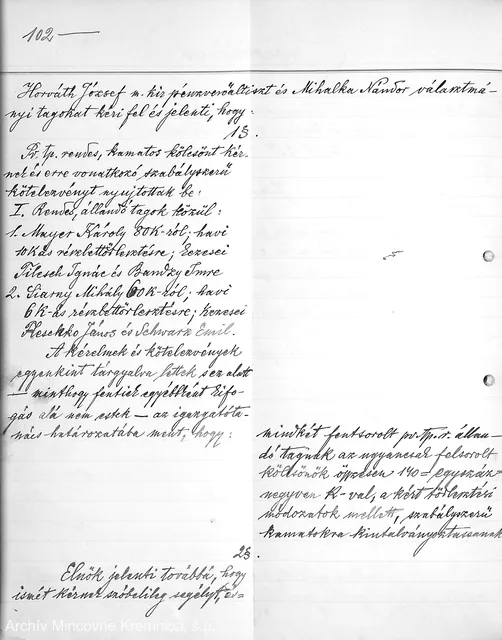 102 —
Horváth József m. kir pénzverőaltiszt és Mihalka Nándor választmá-
nyi tagokat kéri fel és jelenti, hogy:
1§.
Pv. tp. rendes, kamatos kölcsönt kér-
nek és erre vonatkozó, szabályszerű
kötelezvényt nyujtottak be:
I. Rendes, állandó tagok közül:
1. Mayer Károly 80K-ról; havi
10K ás részlettörlesztésre; kezesei
Tilesch Ignác és Imre
2. Siarny Mihály 60K-ról; havi
6K-ás részlettörlesztésre; kezesei
János és Schwarz Emil.
A kérelmek és kötelezvények
egyenkint tárgyalva lettek s ez alatt
— minthogy fentiek egyébként kifo-
gás alá nem estek — az igazgatóta-
nács határozatába ment, hogy:
mindkét fentsorolt pv. tp. r. állan-
dó tagnak az ugyancsak felsorolt
kölcsönök összesen 140 = egyszáz=
negyven K-val, a kért törlesztési
módozatok mellett, szabályszerű
kamatokra kiutalványoztassanak
2§.
Elnök jelenti továbbá, hogy
ismét kérnek szóbelileg segélyt, és=
Archív Mincovne Kremnica, š.p.